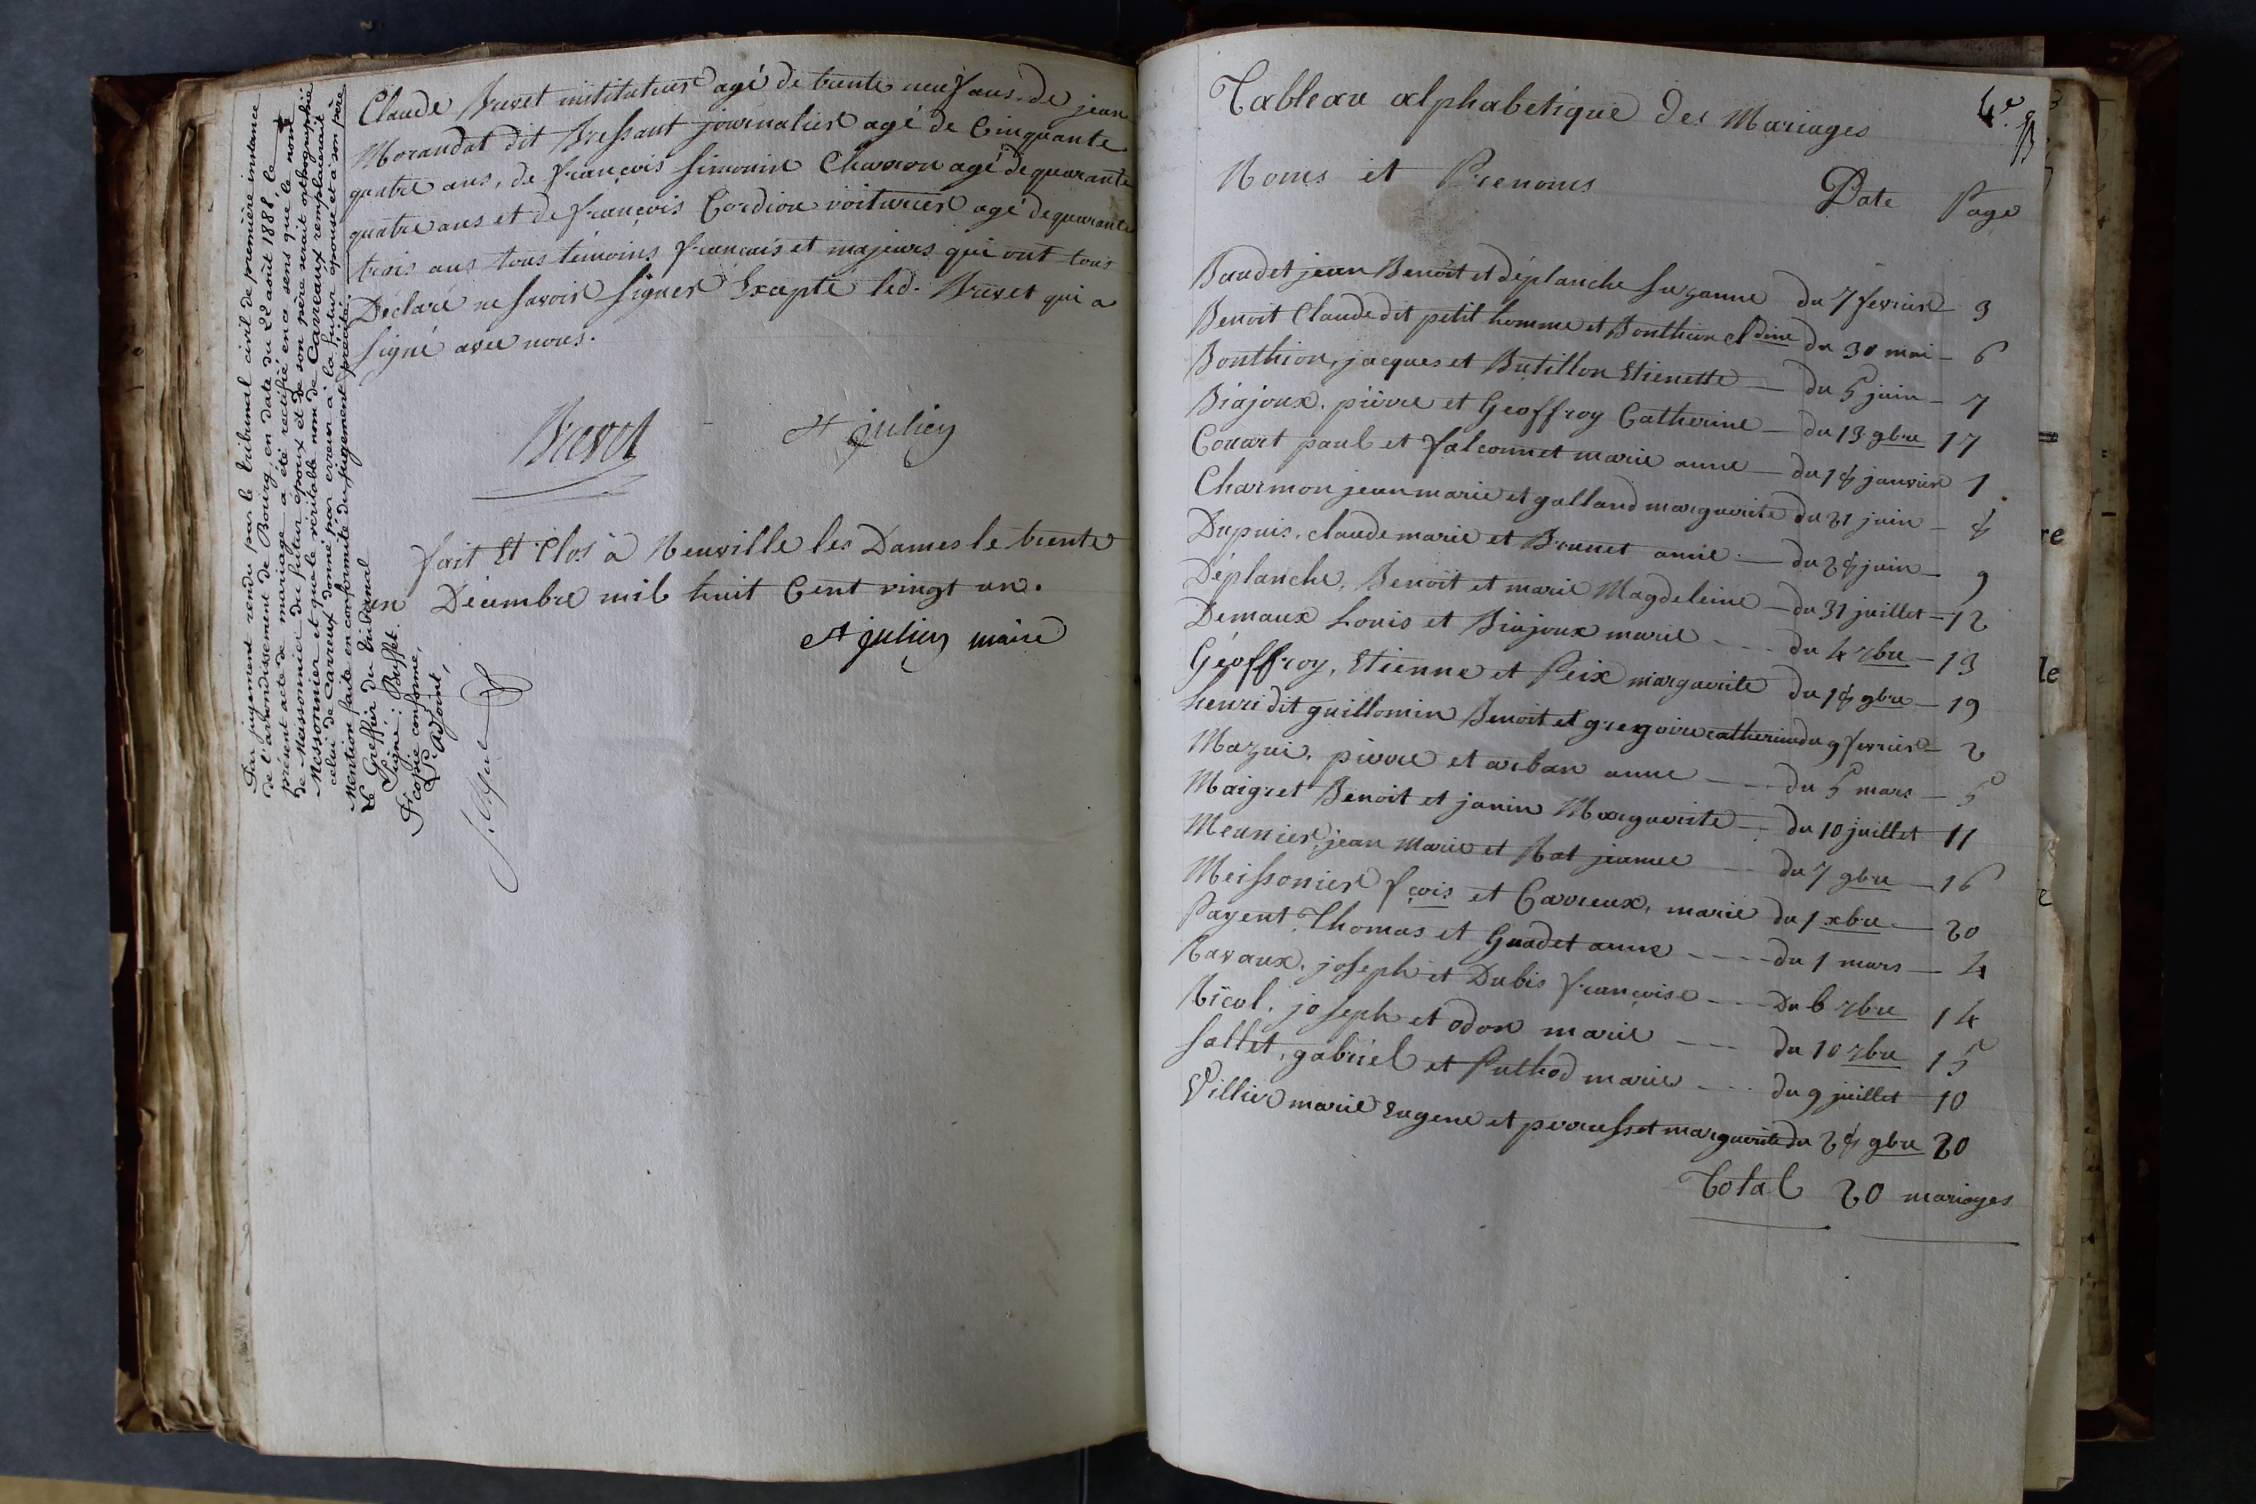 Claude Brevet instituteur agé de trente neuf ans, de jean
Morandat dit Bressant journalier agé de Cinquante
quatre ans, de françois simonin Charron agé de quarante
quatre ans et de françois Cordion voiturier agé de quarante
trois ans tous témoins français et majeurs qui ont tous
Déclaré ne savoir signer Excepté led. Brevet qui a
signé avec nous.
Brevet
St julien
fait Et Clos à Neuville les Dames le trente
un Décembre mil huit Cent vingt un.
St julien maire
Par jugement rendu par le tribunal civil de première instance
de l'arrondissement de Bourg, en date du 22 août 1888, le
présent acte de mariage a été rectifié en ce sens que le nom
de Meissonnier du futur époux et de son père serait orthographié
Messonnier et que le véritable nom de Carreaux remplacerait
celui de Carreux donné par erreur à la future épouse et à son père.
Mention faite en conformité du jugement précité.
Le Greffier du tribunal
Signé: Buffet.
Pr copie conforme,
L'Adjoint,
Tableau alphabetique Des Mariages
4e
Noms et Prenoms Date Page
Baudet jean Benoit et déplanche suzanne du 7 fevrier 3
Benoit Claude dit petit homme et Bonthion Cldine du 30 mai 6
Bonthion, jacques et Butillon Etienette du 5 juin 7
Biajoux, pierre et Geoffroy Catherine du 13 9bre 17
Couart paul et falconnet marie anne du 14 janvier 1
Charmon jean marie et galland marguerite du 21 juin 8
Dupuis, claude marie et Brunet anne du 24 juin 9
Déplanche, Benoit et marie Magdeleine du 31 juillet 12
Demaux Louis et Biajoux marie du 4 7bre 13
Géoffroy, Etienne et Peix marguerite du 14 9bre 19
henri dit guillomin Benoit et gregoire catherine du 9 fevrier 2
Mazui, pierre et arban anne du 5 mars 5
Maigret Benoit et janin Marguerite du 10 juillet 11
Meunier, jean Marie et Rat jeanne du 7 9bre 16
Meissonier fçois et Carreux, marie du 1 xbre 20
Payent, Thomas et Guadet anne du 1 mars 4
Ravaux, joseph et Dubis françoise Du 6 7bre 14
Ricol, joseph et odon marie du 10 7bre 15
Sallet, gabriel et Puthod marie du 9 juillet 10
Villier marie Eugene et perrusset marguerite du 24 9bre 20
Total 20 mariages